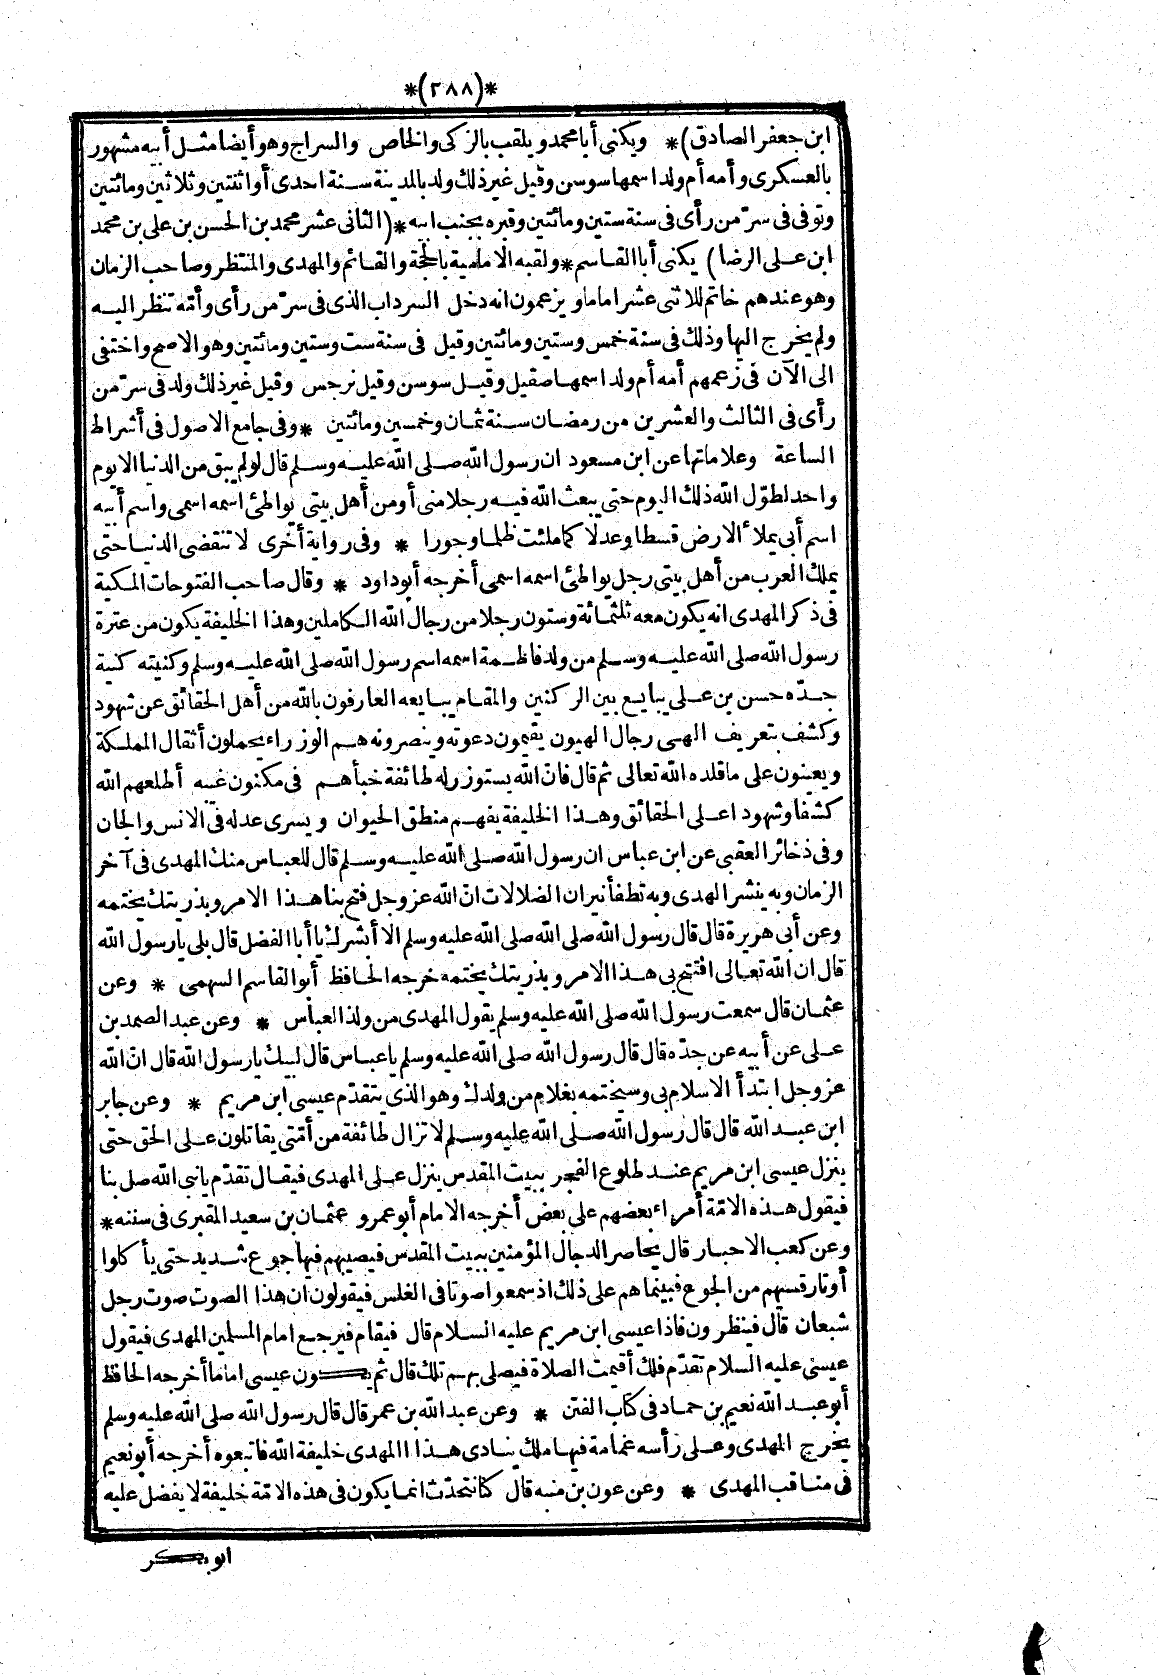 *(٢٨٨)*
ابن جعفر الصادق) * ويكنى أبا محمد ويلقب بالزكى والخاص والسراج وهو أيضا مثل أبيه مشهور
بالعسكرى وأمه أم ولد اسمها سوسن وقيل غير ذلك ولد بالمدينة سنة احدى أو اثنتين وثلاثين ومائتين
وتوفى فى سرّ من رأى فى سنة ستين ومائتين وقبره بجنب ابيه *(الثانى عشر محمد بن الحسن بن على بن محمد
ابن على الرضا) يكنى أبا القاسم * ولقبه الامامية بالحجة والقائم والمهدى والمنتظر وصاحب الزمان
وهو عندهم خاتم للاثنى عشر اماما ويزعمون انه دخل السرداب الذى فى سرّ من رأى وأمّه تنظر اليه
ولم يخرج اليها وذلك فى سنة خمس وستين ومائتين وقيل فى سنة ست وستين ومائتين وهو الاصح واختفى
الى الآن فى زعمهم أمه أم ولد اسمها صقيل وقيل سوسن وقيل نرجس وقيل غير ذلك ولد فى سرّ من
رأى فى الثالث والعشرين من رمضان سنة ثمان وخمسين ومائتين * وفى جامع الاصول فى أشراط
الساعة وعلاماتها عن ابن مسعود ان رسول الله صلى الله عليه وسلم قال لو لم يبق من الدنيا الا يوم
واحد لطوّل الله ذلك اليوم حتى يبعث الله فيه رجلا منى أو من أهل بيتى يواطئ اسمه اسمى واسم أبيه
اسم أبى يملأ الارض قسطا وعدلا كما ملئت ظلما وجورا * وفى رواية أخرى لا تنقضى الدنيا حتى
يملك العرب من أهل بيتى رجل يواطئ اسمه اسمى أخرجه أبو داود * وقال صاحب الفتوحات المكية
فى ذكر المهدى انه يكون معه ثلثمائة وستون رجلا من رجال الله الكاملين وهذا الخليفة يكون من عترة
رسول الله صلى الله عليه وسلم من ولد فاطمة اسمه اسم رسول الله صلى الله عليه وسلم وكنيته كنية
جدّه حسن بن على يبايع بين الركنين والمقام يبايعه العارفون بالله من أهل الحقائق عن شهود
وكشف بتعريف الهى رجال الهيون يقيمون دعوته وينصرونه هم الوزراء يحملون أثقال المملكة
ويعينون على ما قلده الله تعالى ثم قال فان الله يستوزر له طائفة خبأهم فى مكنون غيبه أطلعهم الله
كشفا وشهودا على الحقائق وهذا الخليفة يفهم منطق الحيوان ويسرى عدله فى الانس والجان
وفى ذخائر العقبى عن ابن عباس ان رسول الله صلى الله عليه وسلم قال للعباس منك المهدى فى آخر
الزمان وبه ينشر الهدى وبه تطفأ نيران الضلالات انّ الله عز وجل فتح بنا هذا الامر وبذريتك يختمه
وعن أبى هريرة قال قال رسول الله صلى الله عليه وسلم الا أبشرك يا أبا الفضل قال بلى يا رسول الله
قال ان الله تعالى افتتح بى هذا الامر وبذريتك يختمه خرجه الحافظ أبو القاسم السهمى * وعن
عثمان قال سمعت رسول الله صلى الله عليه وسلم يقول المهدى من ولد العباس * وعن عبد الصمد بن
على عن أبيه عن جدّه قال قال رسول الله صلى الله عليه وسلم يا عباس قال لبيك يا رسول الله قال انّ الله
عز وجل ابتدأ الاسلام بى وسيختمه بغلام من ولدك وهو الذى يتقدّم عيسى ابن مريم * وعن جابر
ابن عبد الله قال قال رسول الله صلى الله عليه وسلم لا تزال طائفة من أمّتى يقاتلون على الحق حتى
ينزل عيسى ابن مريم عند طلوع الفجر ببيت المقدس ينزل على المهدى فيقال تقدّم يا نبى الله صل بنا
فيقول هذه الامّة أمراء بعضهم على بعض أخرجه الامام أبو عمرو عثمان بن سعيد المقبرى فى سننه *
وعن كعب الاحبار قال يحاصر الدجال المؤمنين ببيت المقدس فيصيبهم فيها جوع شديد حتى يأكلوا
أوتار قسيهم من الجوع فبينما هم على ذلك اذ سمعوا صوتا فى الغلس فيقولون ان هذا الصوت صوت رجل
شبعان قال فينظرون فاذا عيسى ابن مريم عليه السلام قال فيقام فيرجع امام المسلمين المهدى فيقول
عيسى عليه السلام تقدّم فلك أقيمت الصلاة فيصلى بهم تلك قال ثم يكون عيسى اماما أخرجه الحافظ
أبو عبد الله نعيم بن حماد فى كتاب الفتن * وعن عبد الله بن عمر قال قال رسول الله صلى الله عليه وسلم
يخرج المهدى وعلى رأسه غمامة فيها ملك ينادى هذا المهدى خليفة الله فاتبعوه أخرجه أبو نعيم
فى مناقب المهدى * وعن عون بن منبه قال كنا نتحدّث انما يكون فى هذه الامّة خليفة لا يفضل عليه
ابو بكر